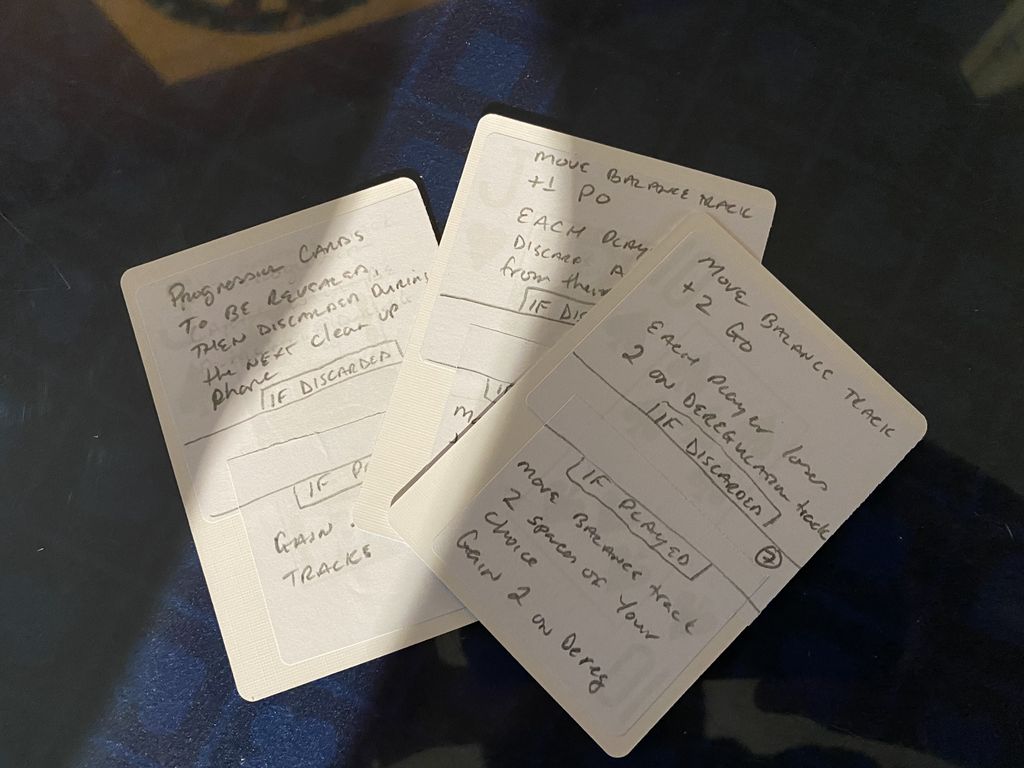 Progressive Cards
TO BE REVEALED,
THEN DISCARDED DURING
the NEXT Clean up
phase
IF DISCARDED
IF
GAIN
TRACKS
MOVE BALANCE TRACK
+1 PO
EACH
DISCARD A
from their
IF
MOVE BALANCE TRACK
+2 GO
EACH Player loses
2 ON DEREGULATION track
IF DISCARDED
7
IF PLAYED
MOVE BALANCE track
2 spaces of your
choice
GAIN 2 ON Dereg